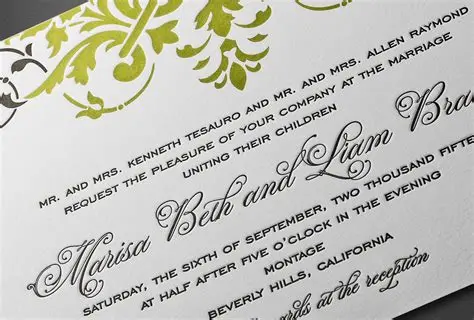 MR. AND MRS. KENNETH TESAURO AND MR. AND MRS. ALLEN RAYMOND
REQUEST THE PLEASURE OF YOUR COMPANY AT THE MARRIAGE
UNITING THEIR CHILDREN
Marisa Beth and Liam Bra
SATURDAY, THE SIXTH OF SEPTEMBER, TWO THOUSAND FIFTE
AT HALF AFTER FIVE O'CLOCK IN THE EVENING
MONTAGE
BEVERLY HILLS, CALIFORNIA
at the reception